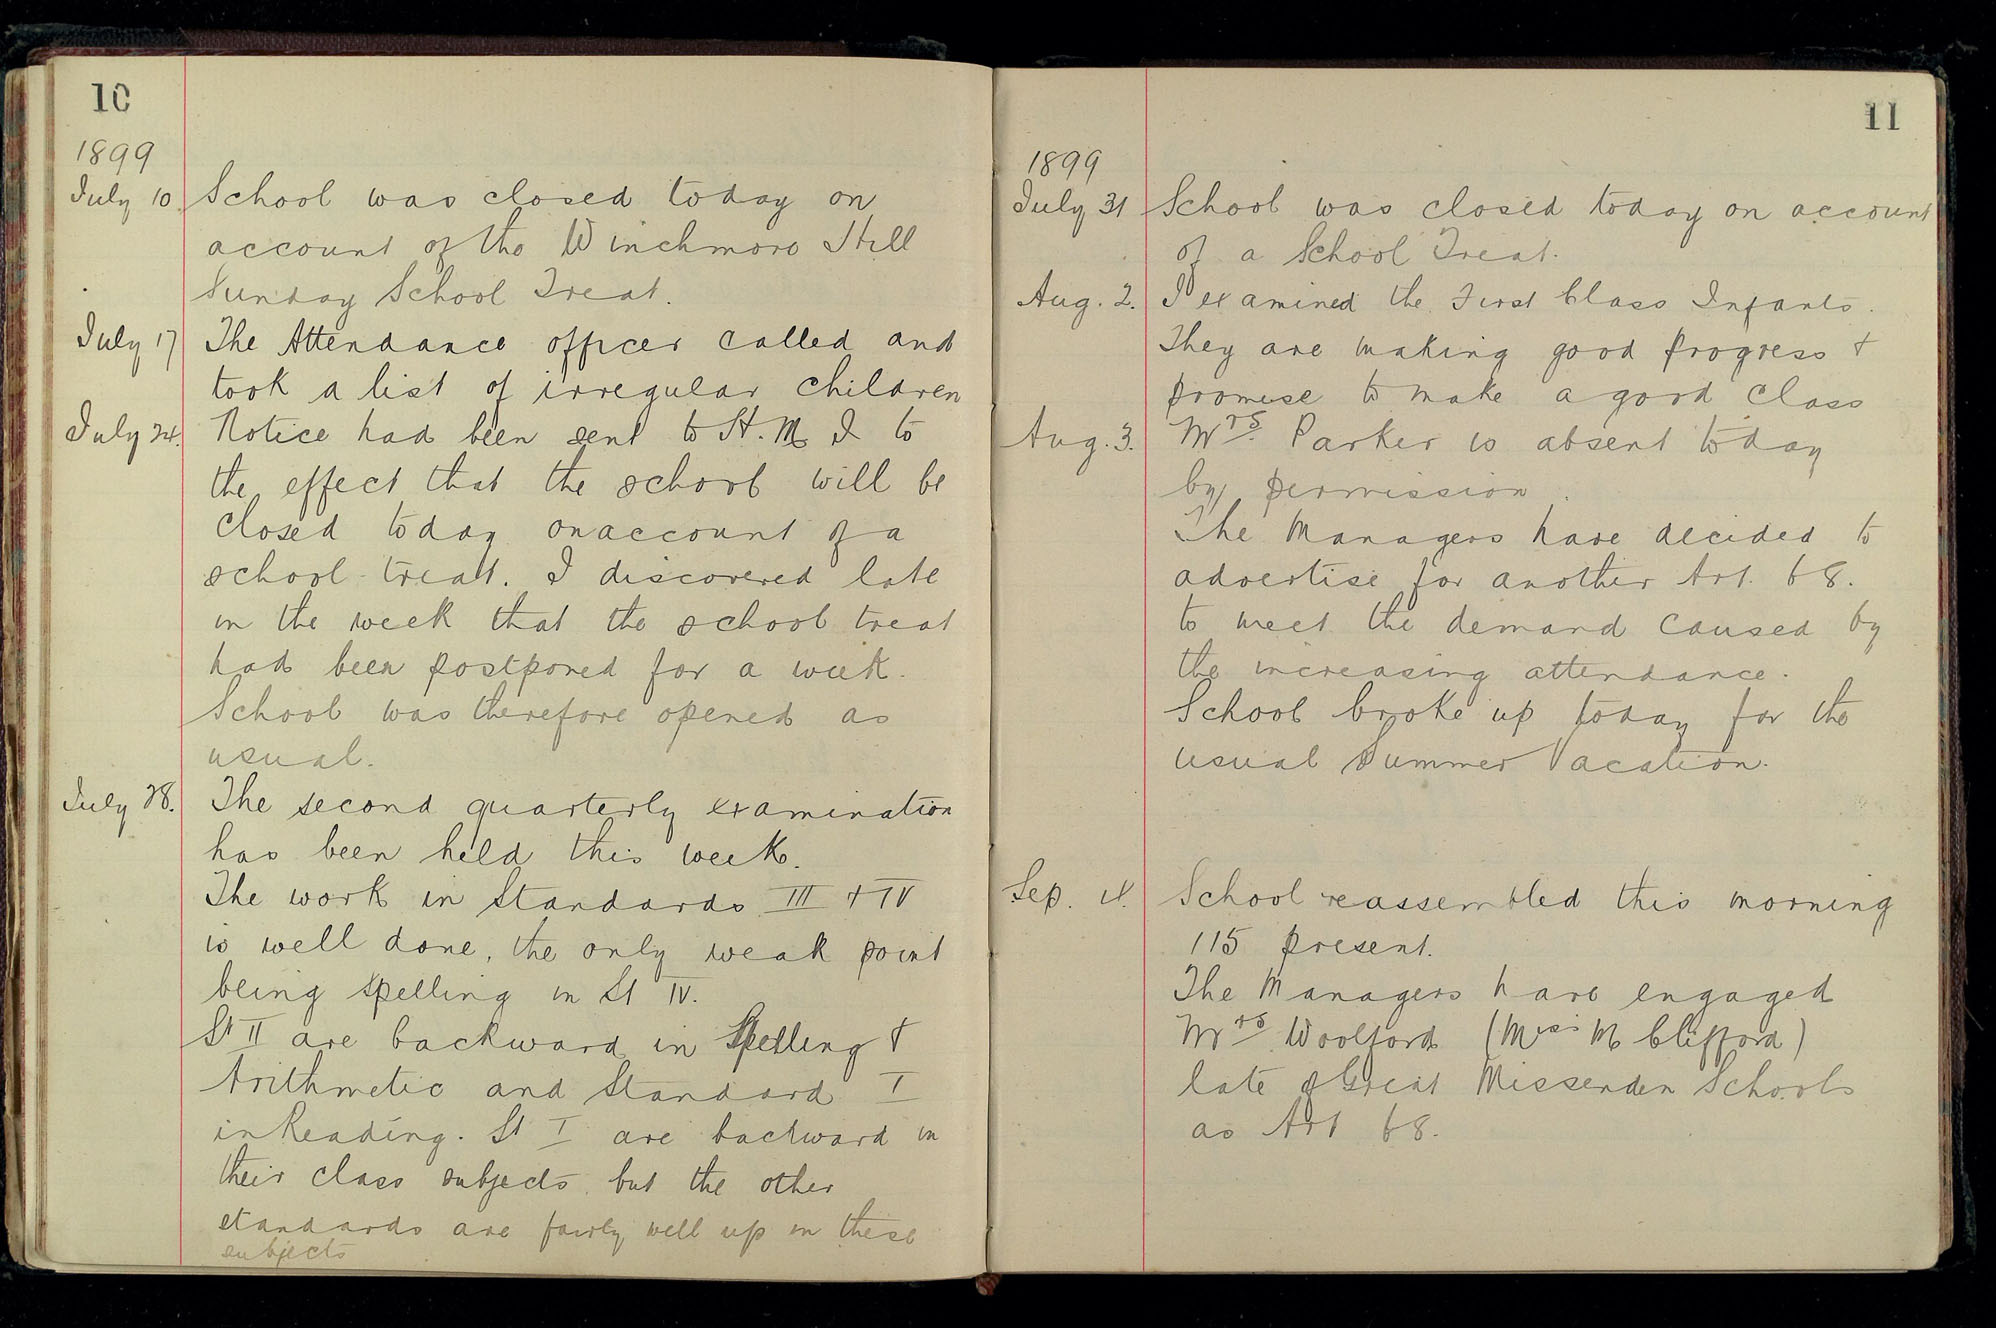 10
1899
July 10. School was closed today on
account of the Winchmore Hill
Sunday School Treat.
July 17 The Attendance officer called and
took a list of irregular children
July 24. Notice had been sent to H. M I to
the effect that the school will be
closed today on account of a
school treat. I discovered late
in the week that the school treat
had been postponed for a week.
School was therefore opened as
usual.
July 28. The second quarterly examination
has been held this week.
The work in Standards III + IV
is well done, the only weak point
being spelling in St IV.
St II are backward in Spelling +
Arithmetic and Standard I
in Reading. St I are backward in
their class subjects but the other
standards are fairly well up in these
subjects
11
1899
July 31 School was closed today on account
of a School Treat.
Aug. 2. I examined the First Class Infants.
They are making good progress +
promise to make a good class
Aug. 3. Mrs. Parker is absent today
by permission.
The Managers have decided to
advertise for another Art. 68.
to meet the demand caused by
the increasing attendance.
School broke up today for the
usual Summer Vacation.
Sep. 4. School reassembled this morning
115 present.
The Managers have engaged
Mrs Woolford (Miss M Clifford)
late of Great Missenden Schools
as Art 68.